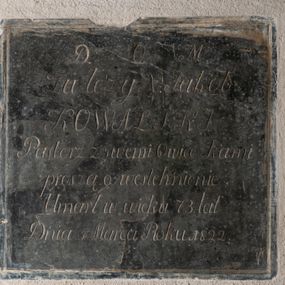 D. O. M.
Tu leży X. Jakób
KOWALSKI
Pasterz z swemi Owieczkami
proszą o westchnienie
Umarł w wieku 73 lat
Dnia 7 Marca Roku 1822